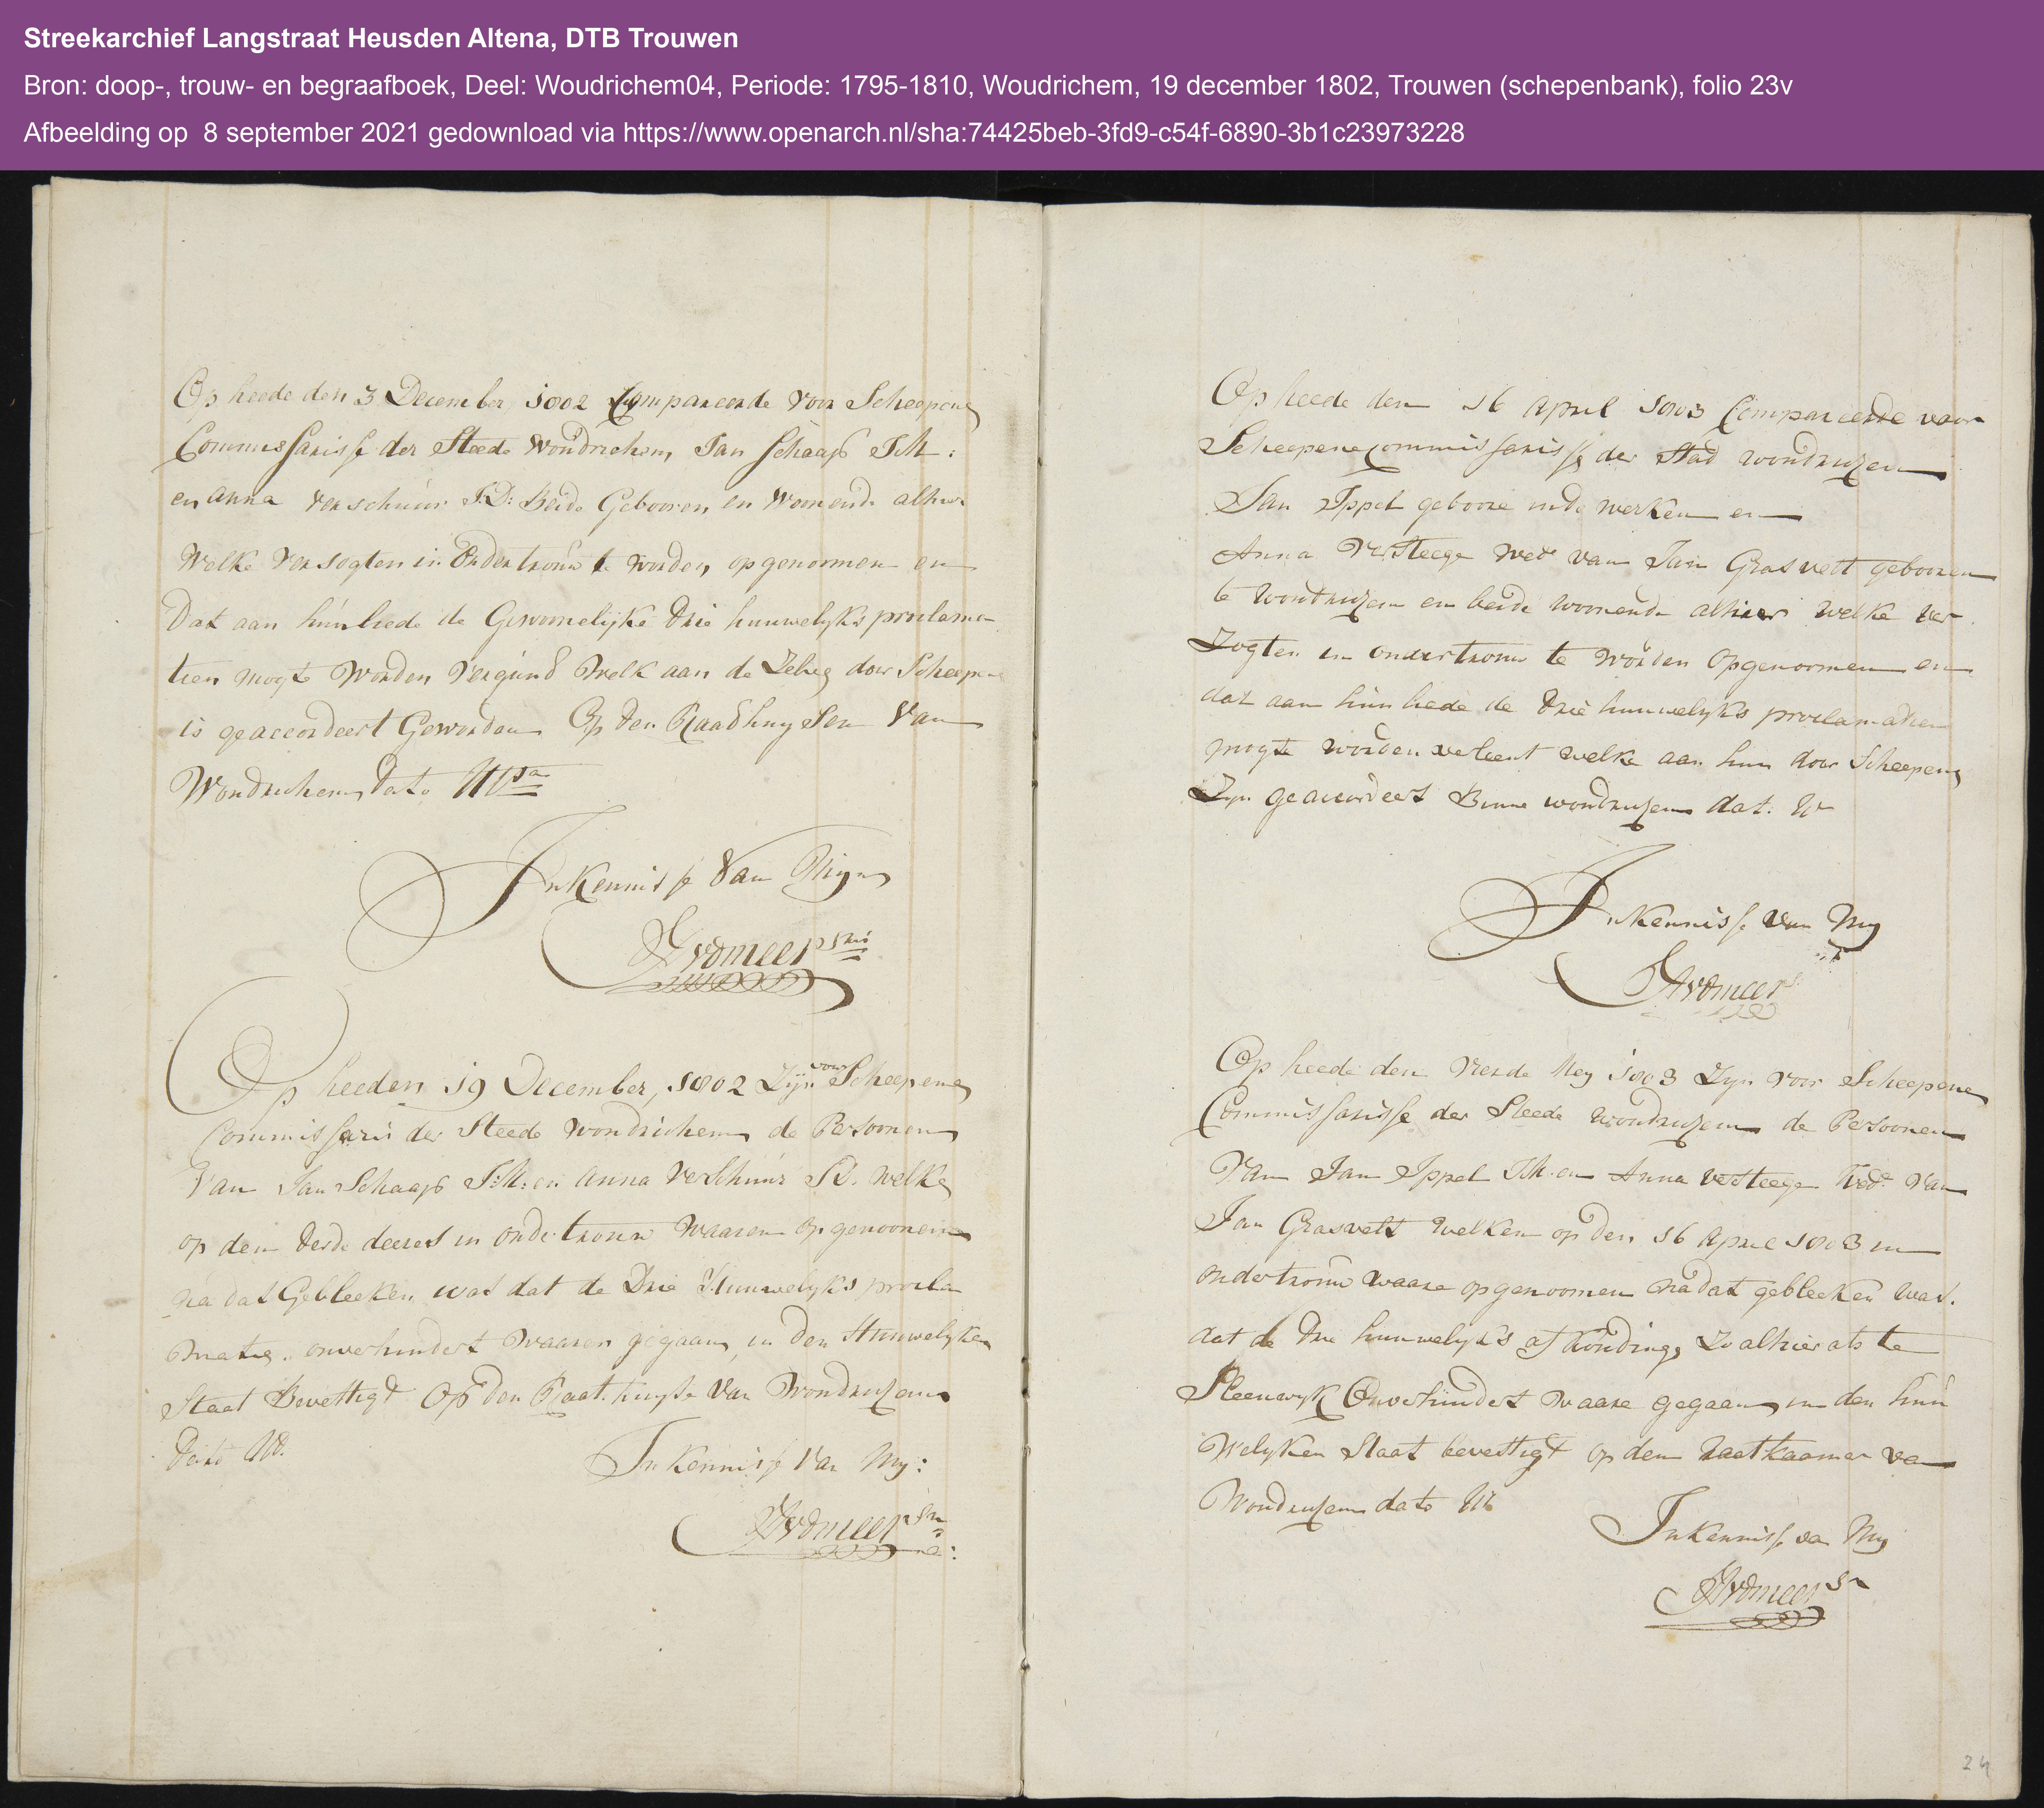 Streekarchief Langstraat Heusden Altena, DTB Trouwen
Bron: doop-, trouw- en begraafboek, Deel: Woudrichem04, Periode: 1795-1810, Woudrichem, 19 december 1802, Trouwen (schepenbank), folio 23v
Afbeelding op  8 september 2021 gedownload via https://www.openarch.nl/sha:74425beb-3fd9-c54f-6890-3b1c23973228
Op heede den 3 December 1802 Compareerde voor Scheepens
Commissarisse der Steede Woudrichem, Jan Schaap J.M:
en Anna Verschuur J.D: Beide Gebooren en Woonende alhier
Welke versogten in Ondertrouw te worden opgenomen en
Dat aan hunliede de Gewoonelijke drie huuwelyks proclama
tien mogte worden Vergund Welk aan de Zelve door Scheepens
is geaccordeert Geworden Op den Raadhuysen Van
Woudrichem dato Ut sa
In Kennisse Van Mijn
Op heeden 19 December, 1802 Zijn voor Scheepene
Commissaris der Steede Woudrichem de Persoonen
Van Jan Schaap J:M: en Anna Verschuur J.D. welke
op den derde deeser in ondertrouw waaren opgenoomen
na dat Gebleeken was dat de Drie Huuwelyks procla
matie. onverhindert waaren gegaan, in den Huuwelyken
Staat Bevestigt Op den Raat huyse Van Woudruchem
Dato Ut.
In Kennisse Van My:
Op heede den 16 April 1803 Compareerde voor
Scheepene commissarisse der Stad woudruchem
Jan Ippel geboore inde werken en
Anna Versteege Wede van Jan Grasvelt gebooren
te Woudruchem en beide woonende alhier welke ver
zogten in ondertrouw te worden Opgenoomen en
dat aan hun liede de drie huuwelyks proclamatien
mogte worden verleent welke aan hun door Scheepens
Zyn geaccordeert Binne woudruchem dat. Ut
In Kennisse Van My
Op heede den Vierde Mey 1803 Zyn voor Scheepene
Commissarisse der Steede woudruchem de Persoonen
Van Jan Ippel J.M. en Anna versteege Wede Van
Jan Grasvelt welken op den 16 April 1803 in
ondertrouw waare opgenoomen nadat gebleeken was.
dat de drie huuwelyks afkondings Zo alhier als te
Sleeuwyk Onverhindert waare gegaan, in den huu
Welyken Staat bevestigt op den Raatkaamer van
Woudruchem dato Ut
In Kennisse van My
24